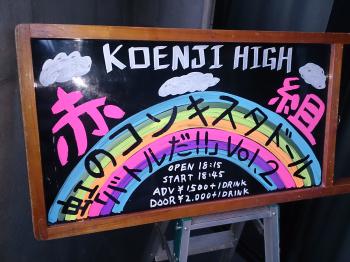 KOENJI HIGH
赤 組
虹のコンキスタドール
「バトルだ!!」Vol.2
OPEN 18:15
START 18:45
ADV ¥1500+1DRINK
DOOR ¥2.000+1DRINK